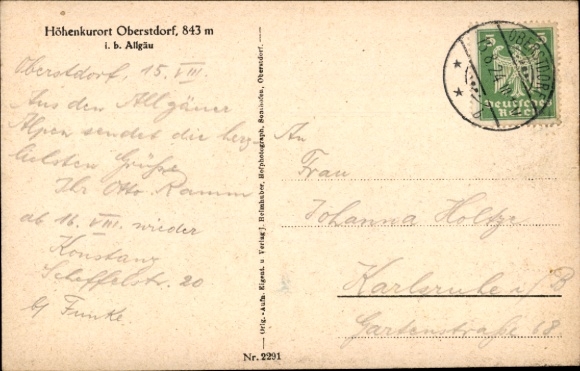 Höhenkurort Oberstdorf, 843 m
i. b. Allgäu
Oberstdorf, 15. VIII.
Aus den Allgäuer
Alpen sendet die herz-
lichsten Grüße
Ihr Otto Ramm
ab 16. VIII. wieder
Konstanz
Scheffelstr. 20
b/ Funke
Orig.-Aufn. Eigent. u. Verlag J. Heimhuber, Hofphotograph, Sonthofen, Oberstdorf.
Nr. 2291
5 5
Deutsches
Reich
OBERSTDORF
An
Frau
Johanna Holtze
Karlsruhe i/B
Gartenstraße 68